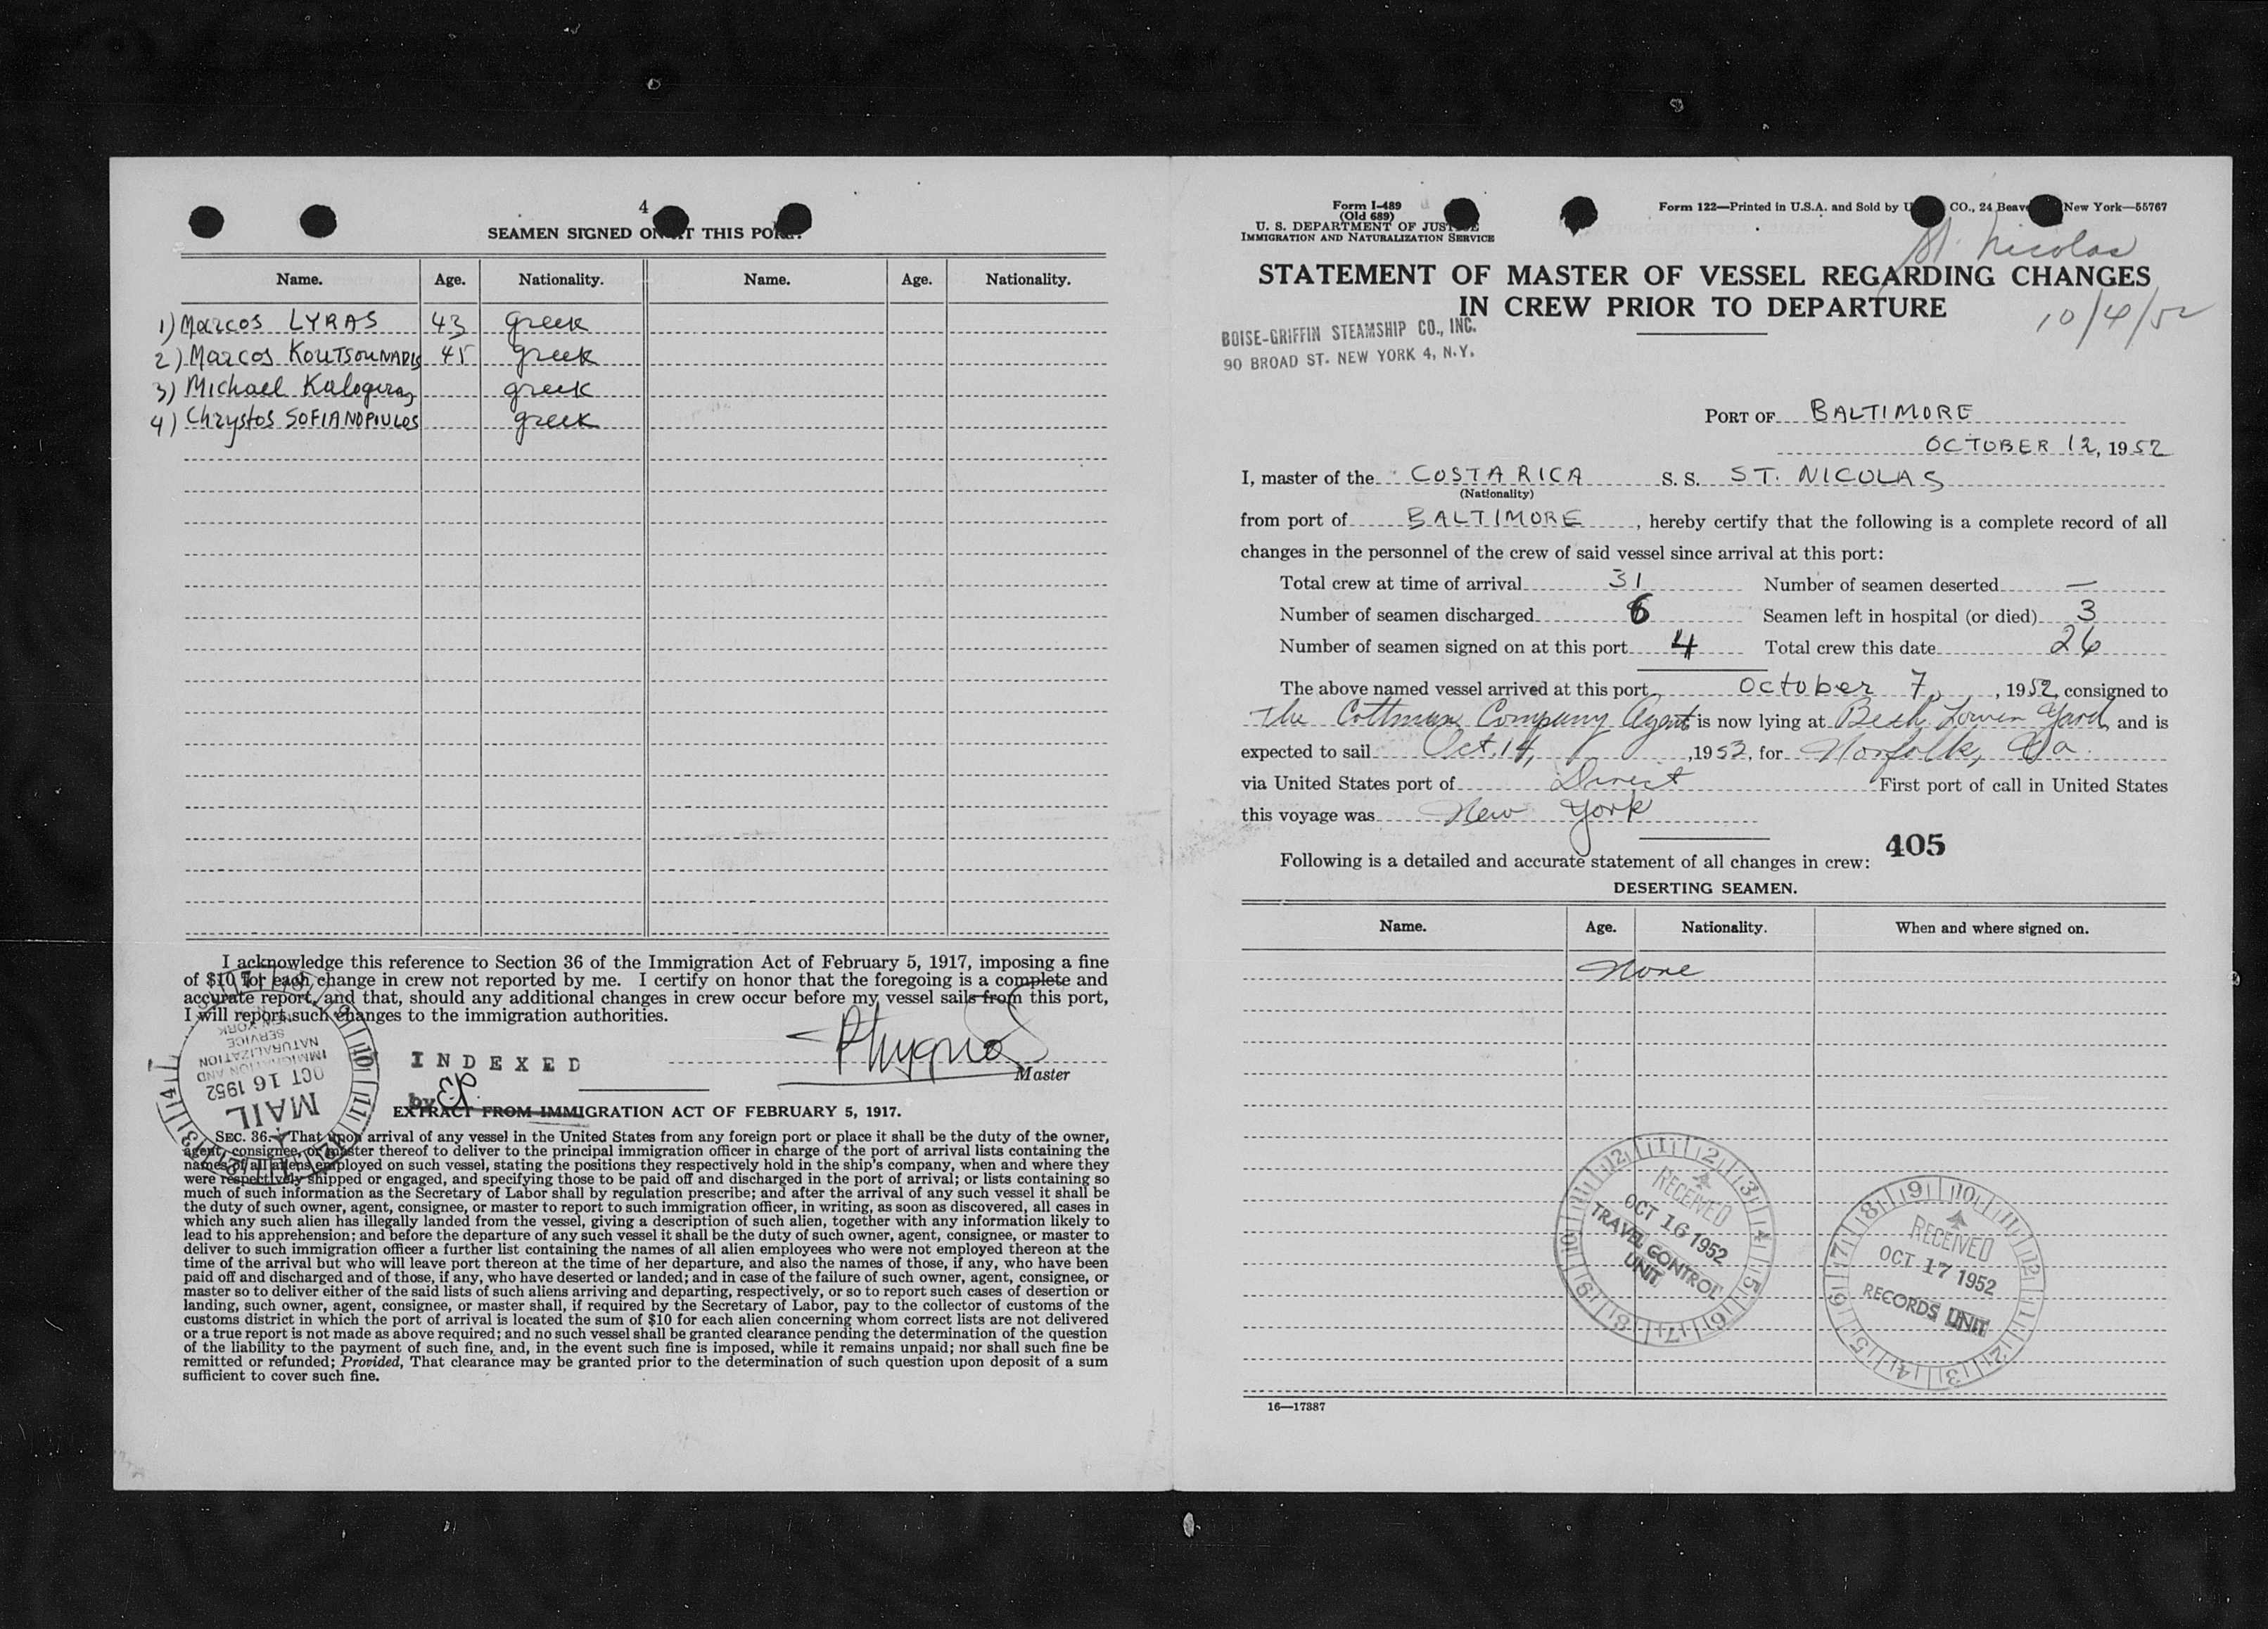 4
SEAMEN SIGNED ON AT THIS PORT.
Name. Age. Nationality. Name. Age. Nationality.
1) Marcos LYRAS 43 greek
2) Marcos KOUTSOUNARIS 45 greek
3) Michael Kalogeras greek
4) Chrystos SOFIANOPOULOS greek
I acknowledge this reference to Section 36 of the Immigration Act of February 5, 1917, imposing a fine
of $10 for each change in crew not reported by me. I certify on honor that the foregoing is a complete and
accurate report, and that, should any additional changes in crew occur before my vessel sails from this port,
I will report such changes to the immigration authorities.
Master
INDEXED
by
IMMIGRATION AND
NATURALIZATION
SERVICE
NEW YORK
OCT 16 1952
MAIL
EXTRACT FROM IMMIGRATION ACT OF FEBRUARY 5, 1917.
SEC. 36. That upon arrival of any vessel in the United States from any foreign port or place it shall be the duty of the owner,
agent, consignee, or master thereof to deliver to the principal immigration officer in charge of the port of arrival lists containing the
names of all aliens employed on such vessel, stating the positions they respectively hold in the ship's company, when and where they
were respectively shipped or engaged, and specifying those to be paid off and discharged in the port of arrival; or lists containing so
much of such information as the Secretary of Labor shall by regulation prescribe; and after the arrival of any such vessel it shall be
the duty of such owner, agent, consignee, or master to report to such immigration officer, in writing, as soon as discovered, all cases in
which any such alien has illegally landed from the vessel, giving a description of such alien, together with any information likely to
lead to his apprehension; and before the departure of any such vessel it shall be the duty of such owner, agent, consignee, or master to
deliver to such immigration officer a further list containing the names of all alien employees who were not employed thereon at the
time of the arrival but who will leave port thereon at the time of her departure, and also the names of those, if any, who have been
paid off and discharged and of those, if any, who have deserted or landed; and in case of the failure of such owner, agent, consignee, or
master so to deliver either of the said lists of such aliens arriving and departing, respectively, or so to report such cases of desertion or
landing, such owner, agent, consignee, or master shall, if required by the Secretary of Labor, pay to the collector of customs of the
customs district in which the port of arrival is located the sum of $10 for each alien concerning whom correct lists are not delivered
or a true report is not made as above required; and no such vessel shall be granted clearance pending the determination of the question
of the liability to the payment of such fine, and, in the event such fine is imposed, while it remains unpaid; nor shall such fine be
remitted or refunded; Provided, That clearance may be granted prior to the determination of such question upon deposit of a sum
sufficient to cover such fine.
Form I-489
(Old 689)
U. S. DEPARTMENT OF JUSTICE
IMMIGRATION AND NATURALIZATION SERVICE
Form 122—Printed in U.S.A. and Sold by U CO., 24 Beave New York—55767
St. Nicolas
STATEMENT OF MASTER OF VESSEL REGARDING CHANGES
IN CREW PRIOR TO DEPARTURE
10/4/52
BOISE-GRIFFIN STEAMSHIP CO., INC.
90 BROAD ST. NEW YORK 4, N.Y.
PORT OF BALTIMORE
OCTOBER 12, 1952
I, master of the COSTA RICA S. S. ST. NICOLAS
(Nationality)
from port of BALTIMORE, hereby certify that the following is a complete record of all
changes in the personnel of the crew of said vessel since arrival at this port:
Total crew at time of arrival 31 Number of seamen deserted —
Number of seamen discharged 6 Seamen left in hospital (or died) 3
Number of seamen signed on at this port 4 Total crew this date 26
The above named vessel arrived at this port October 7, 1952, consigned to
The Cottman Company Agent is now lying at Beth Lower Yard, and is
expected to sail Oct. 14, 1952, for Norfolk, Va.
via United States port of Direct First port of call in United States
this voyage was New York
405
Following is a detailed and accurate statement of all changes in crew:
DESERTING SEAMEN.
Name. Age. Nationality. When and where signed on.
None
RECEIVED
OCT 16 1952
TRAVEL CONTROL
UNIT
RECEIVED
OCT 17 1952
RECORDS UNIT
16—17387